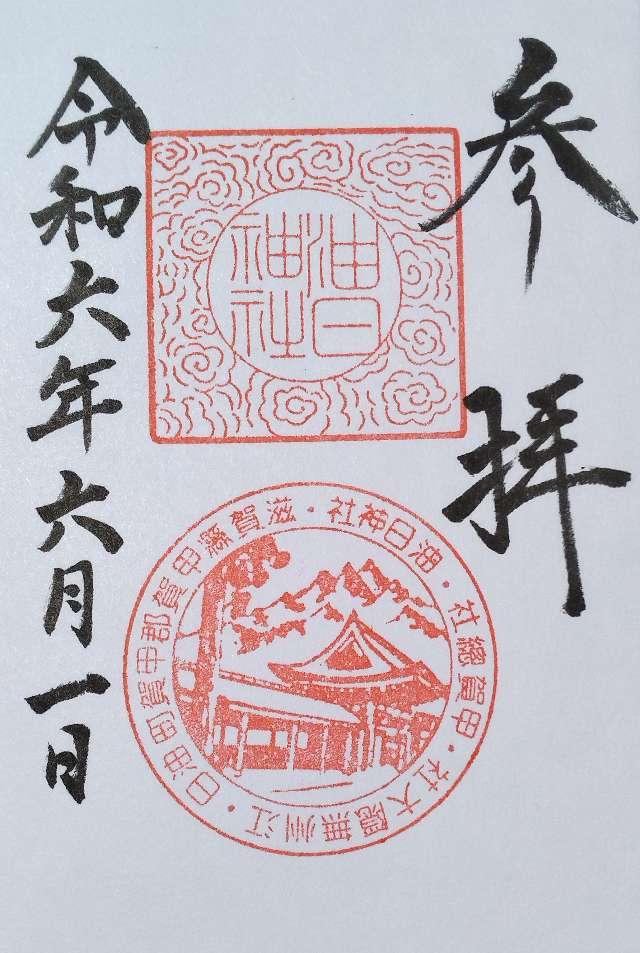 参拝
油日
神社
油日神社・滋賀縣甲賀郡甲賀町油日・江州無隠大社・甲賀總社・
令和六年六月一日